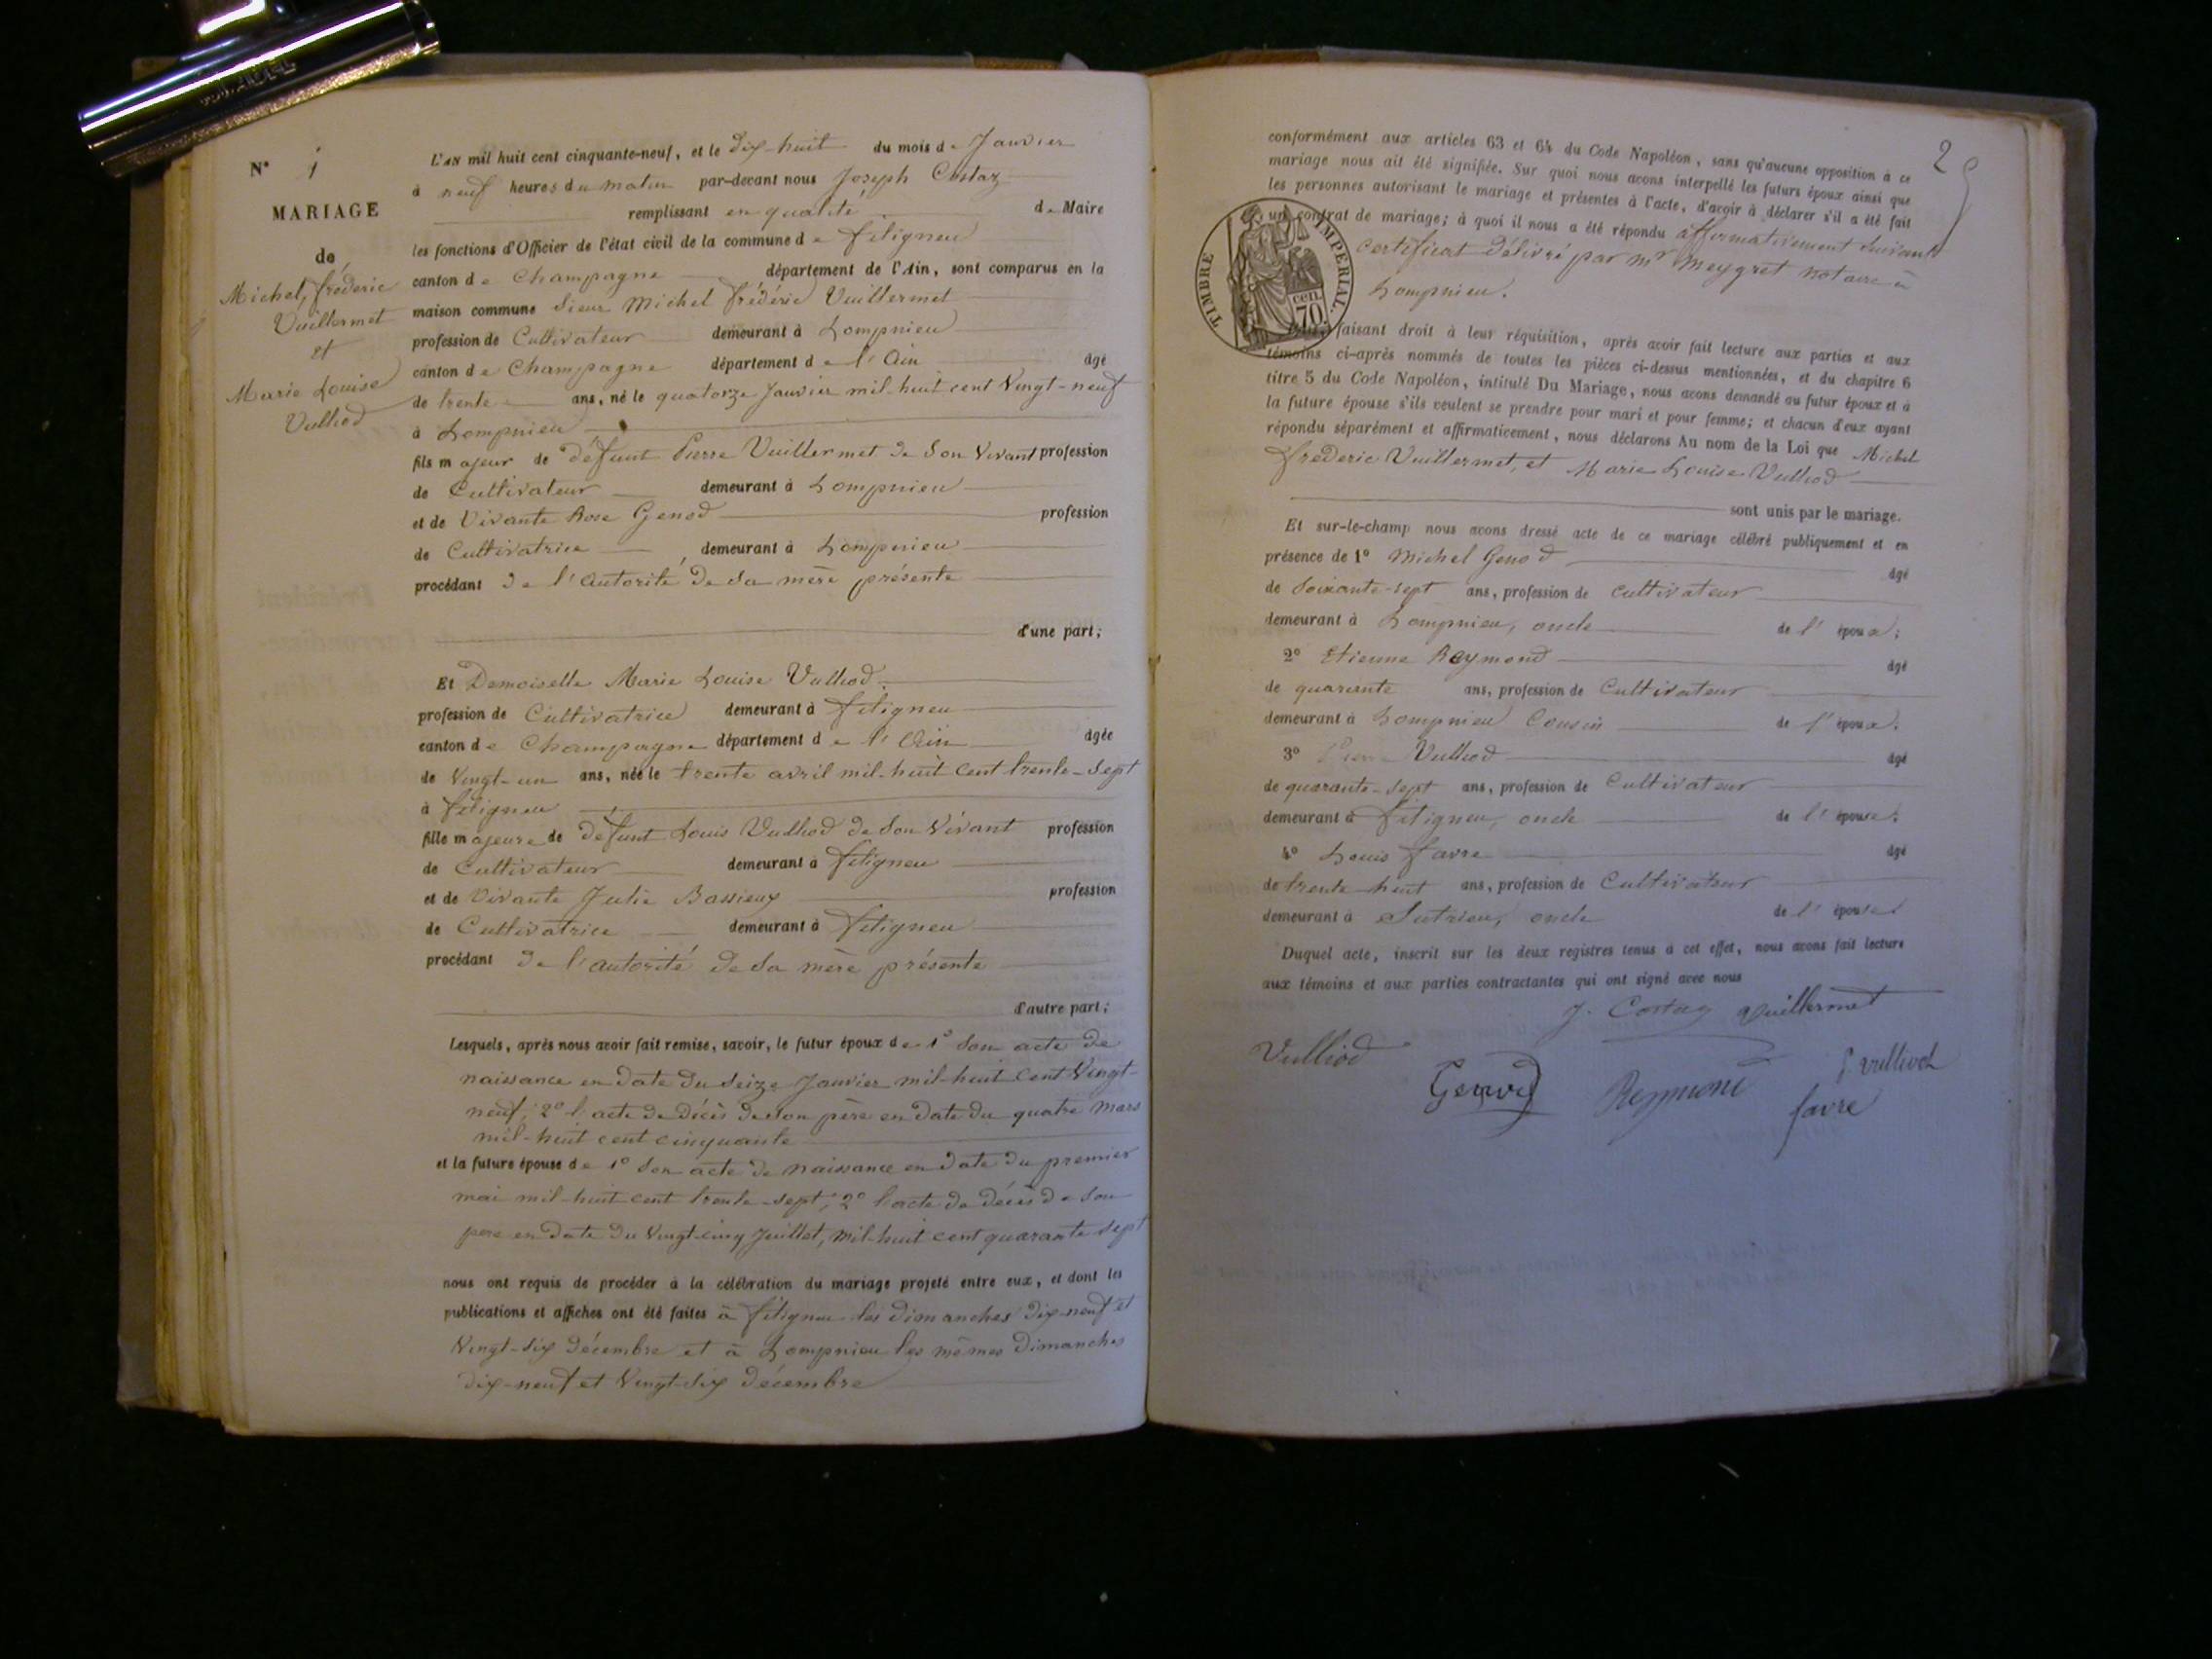 N° 1
MARIAGE
de
Michel, frédéric
Vuillermet
et
Marie Louise
Vulliod
L'AN mil huit cent cinquante-neuf, et le dix-huit du mois de Janvier
à neuf heures du matin par-devant nous Joseph Costaz
remplissant en qualité de Maire
les fonctions d'Officier de l'état civil de la commune de fitigneu
canton de Champagne département de l'Ain, sont comparus en la
maison commune Sieur Michel frédéric Vuillermet
profession de Cultivateur demeurant à Lompnieu
canton de Champagne département de l'Ain âgé
de trente ans, né le quatorze Janvier mil-huit cent Vingt-neuf
à Lompnieu
fils majeur de défunt Pierre Vuillermet de Son Vivant profession
de Cultivateur demeurant à Lompnieu
et de Vivante Rose Genod profession
de Cultivatrice demeurant à Lompnieu
procédant de l'autorité de Sa mère présente
d'une part;
Et Demoiselle Marie Louise Vulliod
profession de Cultivatrice demeurant à fitigneu
canton de Champagne département de l'Ain âgée
de Vingt-un ans, née le trente avril mil-huit cent trente-Sept
à fitigneu
fille majeure de défunt Louis Vulliod de Son Vivant profession
de Cultivateur demeurant à fitigneu
et de Vivante Julie Bassieux profession
de Cultivatrice demeurant à fitigneu
procédant de l'autorité de Sa mère présente
d'autre part;
Lesquels, après nous avoir fait remise, savoir, le futur époux de 1° Son acte de
naissance en date du Seize Janvier mil-huit Cent Vingt-
neuf; 2° l'acte de décès de son père en date du quatre mars
mil-huit cent cinquante
et la future épouse de 1° Son acte de naissance en date du premier
mai mil-huit cent trente-sept; 2° l'acte de décès de Son
père en date du Vingt-cinq Juillet, mil-huit cent quarante sept
nous ont requis de procéder à la célébration du mariage projeté entre eux, et dont les
publications et affiches ont été faites à fitigneu les dimanches dix-neuf et
Vingt-six décembre et à Lompnieu les mêmes dimanches
dix-neuf et Vingt-six décembre
2
conformément aux articles 63 et 64 du Code Napoléon, sans qu'aucune opposition à ce
mariage nous ait été signifiée. Sur quoi nous avons interpellé les futurs époux ainsi que
les personnes autorisant le mariage et présentes à l'acte, d'avoir à déclarer s'il a été fait
un contrat de mariage; à quoi il nous a été répondu affirmativement suivant
certificat délivré par mr meygret notaire à
Lompnieu.
TIMBRE IMPÉRIAL.
70 cen.
faisant droit à leur réquisition, après avoir fait lecture aux parties et aux
témoins ci-après nommés de toutes les pièces ci-dessus mentionnées, et du chapitre 6
titre 5 du Code Napoléon, intitulé Du Mariage, nous avons demandé au futur époux et à
la future épouse s'ils veulent se prendre pour mari et pour femme; et chacun d'eux ayant
répondu séparément et affirmativement, nous déclarons Au nom de la Loi que Michel
fréderic Vuillermet, et Marie Louise Vulliod
sont unis par le mariage.
Et sur-le-champ nous avons dressé acte de ce mariage célébré publiquement et en
présence de 1° Michel Genod âgé
de Soixante-sept ans, profession de cultivateur
demeurant à Lompnieu, oncle de l'époux;
2° Etienne Reymond âgé
de quarante ans, profession de Cultivateur
demeurant à Lompnieu Cousin de l'époux.
3° Vulliod âgé
de quarante-sept ans, profession de Cultivateur
demeurant à fitigneu, oncle de l'épouse;
4° Louis favre âgé
de trente-huit ans, profession de Cultivateur
demeurant à Sutrieu, oncle de l'épouse
Duquel acte, inscrit sur les deux registres tenus à cet effet, nous avons fait lecture
aux témoins et aux parties contractantes qui ont signé avec nous
J. Costaz Vuillermet
Vulliod
Genod Reymond P. Vulliod
favre